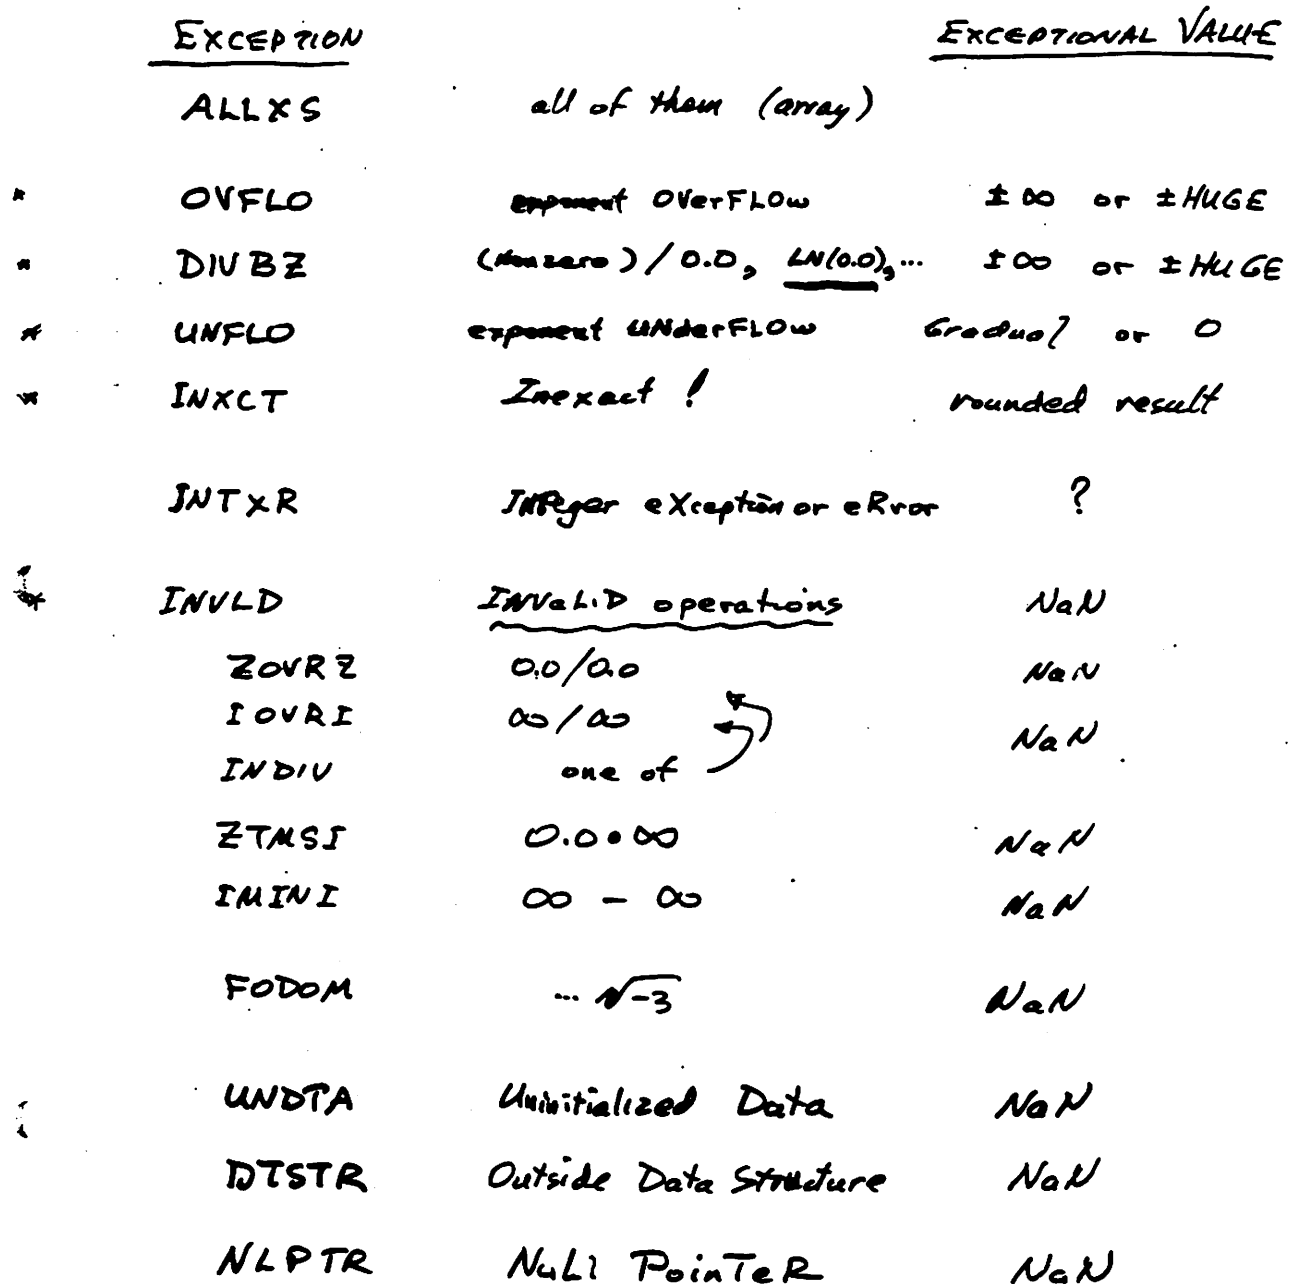 EXCEPTION EXCEPTIONAL VALUE
ALLXS all of them (array)
* OVFLO exponent OVerFLOw ±∞ or ±HUGE
* DIVBZ (Nonzero)/0.0, LN(0.0), ... ±∞ or ±HUGE
* UNFLO exponent UNderFLOw Gradual or 0
* INXCT Inexact! rounded result
INTXR INTeger eXception or eRror ?
* INVLD INVaLiD operations NaN
ZOVRZ 0.0/0.0 NaN
IOVRI ∞/∞ NaN
INDIV one of
ZTMSI 0.0•∞ NaN
IMINI ∞ - ∞ NaN
FODOM ... √-3 NaN
UNDTA Uninitialized Data NaN
DTSTR Outside Data Structure NaN
NLPTR NuLl PoinTeR NaN